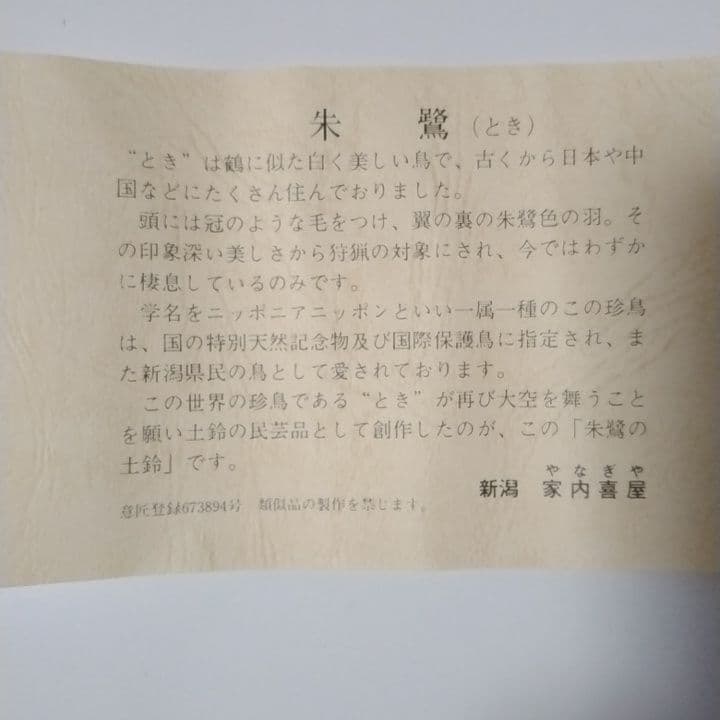 朱鷺(とき)
“とき”は鶴に似た白く美しい鳥で、古くから日本や中
国などにたくさん住んでおりました。
頭には冠のような毛をつけ、翼の裏の朱鷺色の羽。そ
の印象深い美しさから狩猟の対象にされ、今ではわずか
に棲息しているのみです。
学名をニッポニアニッポンといい一属一種のこの珍鳥
は、国の特別天然記念物及び国際保護鳥に指定され、ま
た新潟県民の鳥として愛されております。
この世界の珍鳥である“とき”が再び大空を舞うこと
を願い土鈴の民芸品として創作したのが、この「朱鷺の
土鈴」です。
やなぎや
新潟 家内喜屋
意匠登録673894号 類似品の製作を禁じます。